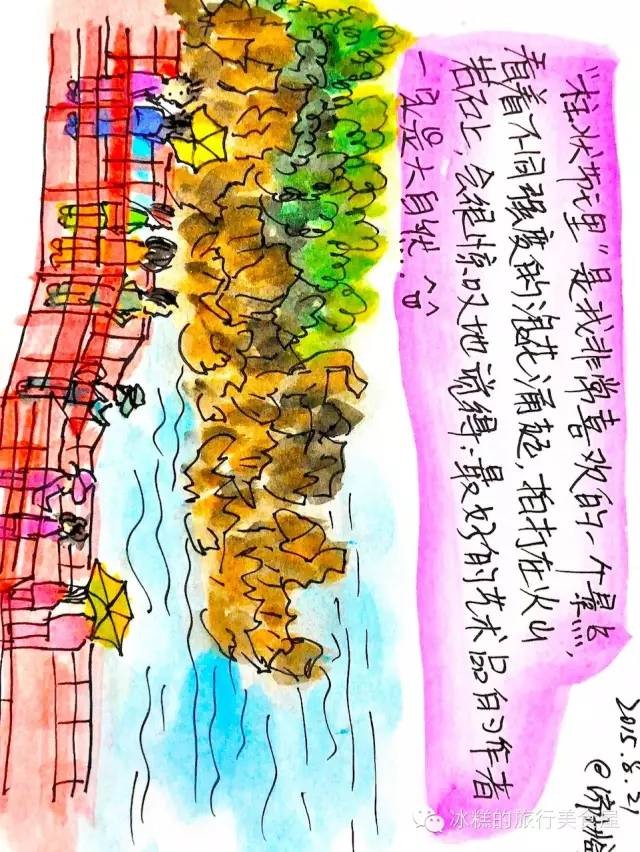 “柱状节理”是我非常喜欢的一个景点,
看着不同强度的浪花涌起,拍打在火山
岩石上,会很惊叹地觉得:最好的艺术品的作者
一定是大自然...
2015.8.21
@济
冰糕的旅行美食屋